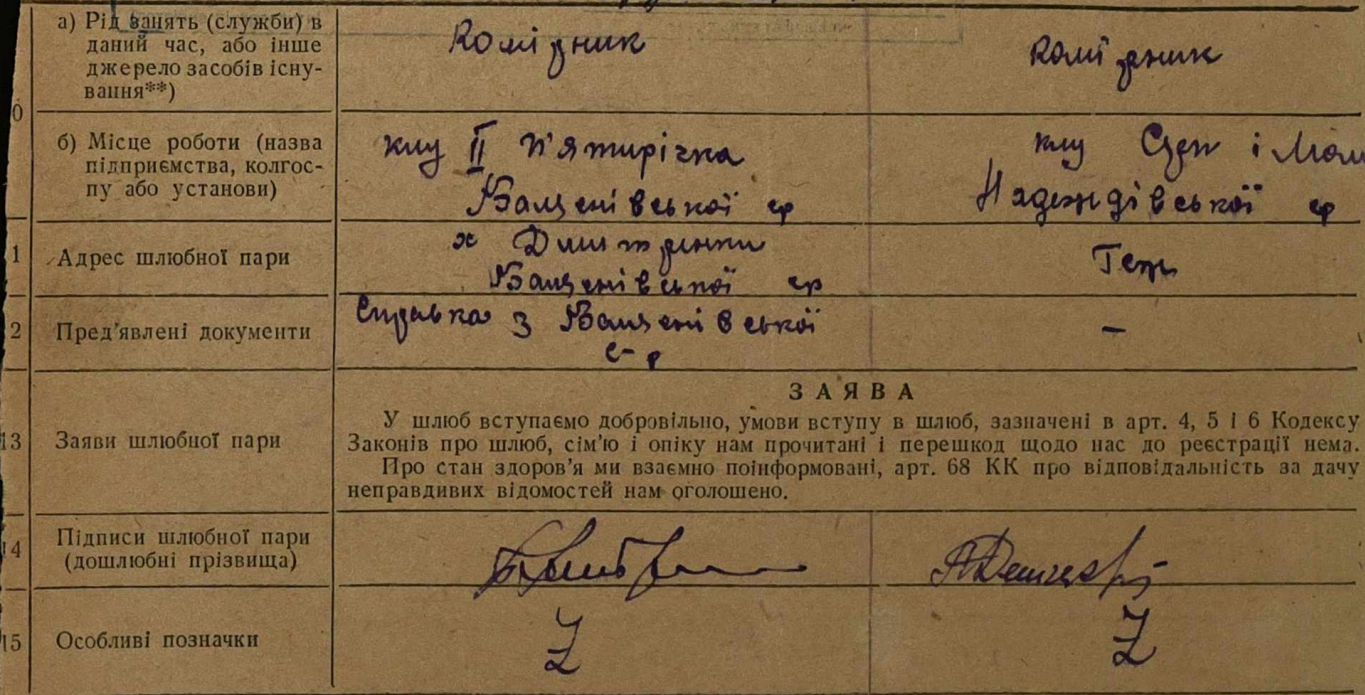 а) Рід занять (служби) в
даний час, або інше
джерело засобів існу-
вання**)
Комірник
Комірник
0
б) Місце роботи (назва
підприємства, колгос-
пу або установи)
клу II П'ятирічка
клу Серп і Мол
Надеждівської ср
1
Адрес шлюбної пари
х
ср
Теж
2
Пред'явлені документи
Справка з
с-р
–
ЗАЯВА
13
Заяви шлюбної пари
У шлюб вступаємо добровільно, умови вступу в шлюб, зазначені в арт. 4, 5 і 6 Кодексу
Законів про шлюб, сім'ю і опіку нам прочитані і перешкод щодо нас до реєстрації нема.
Про стан здоров'я ми взаємно поінформовані, арт. 68 КК про відповідальність за дачу
неправдивих відомостей нам оголошено.
14
Підписи шлюбної пари
(дошлюбні прізвища)
15
Особливі позначки
Z
Z